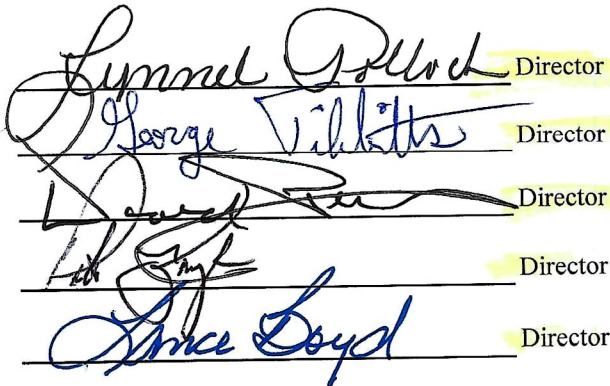 Lynnel Pollock Director
George Tibbitts Director
David Director
Director
Lance Boyd Director